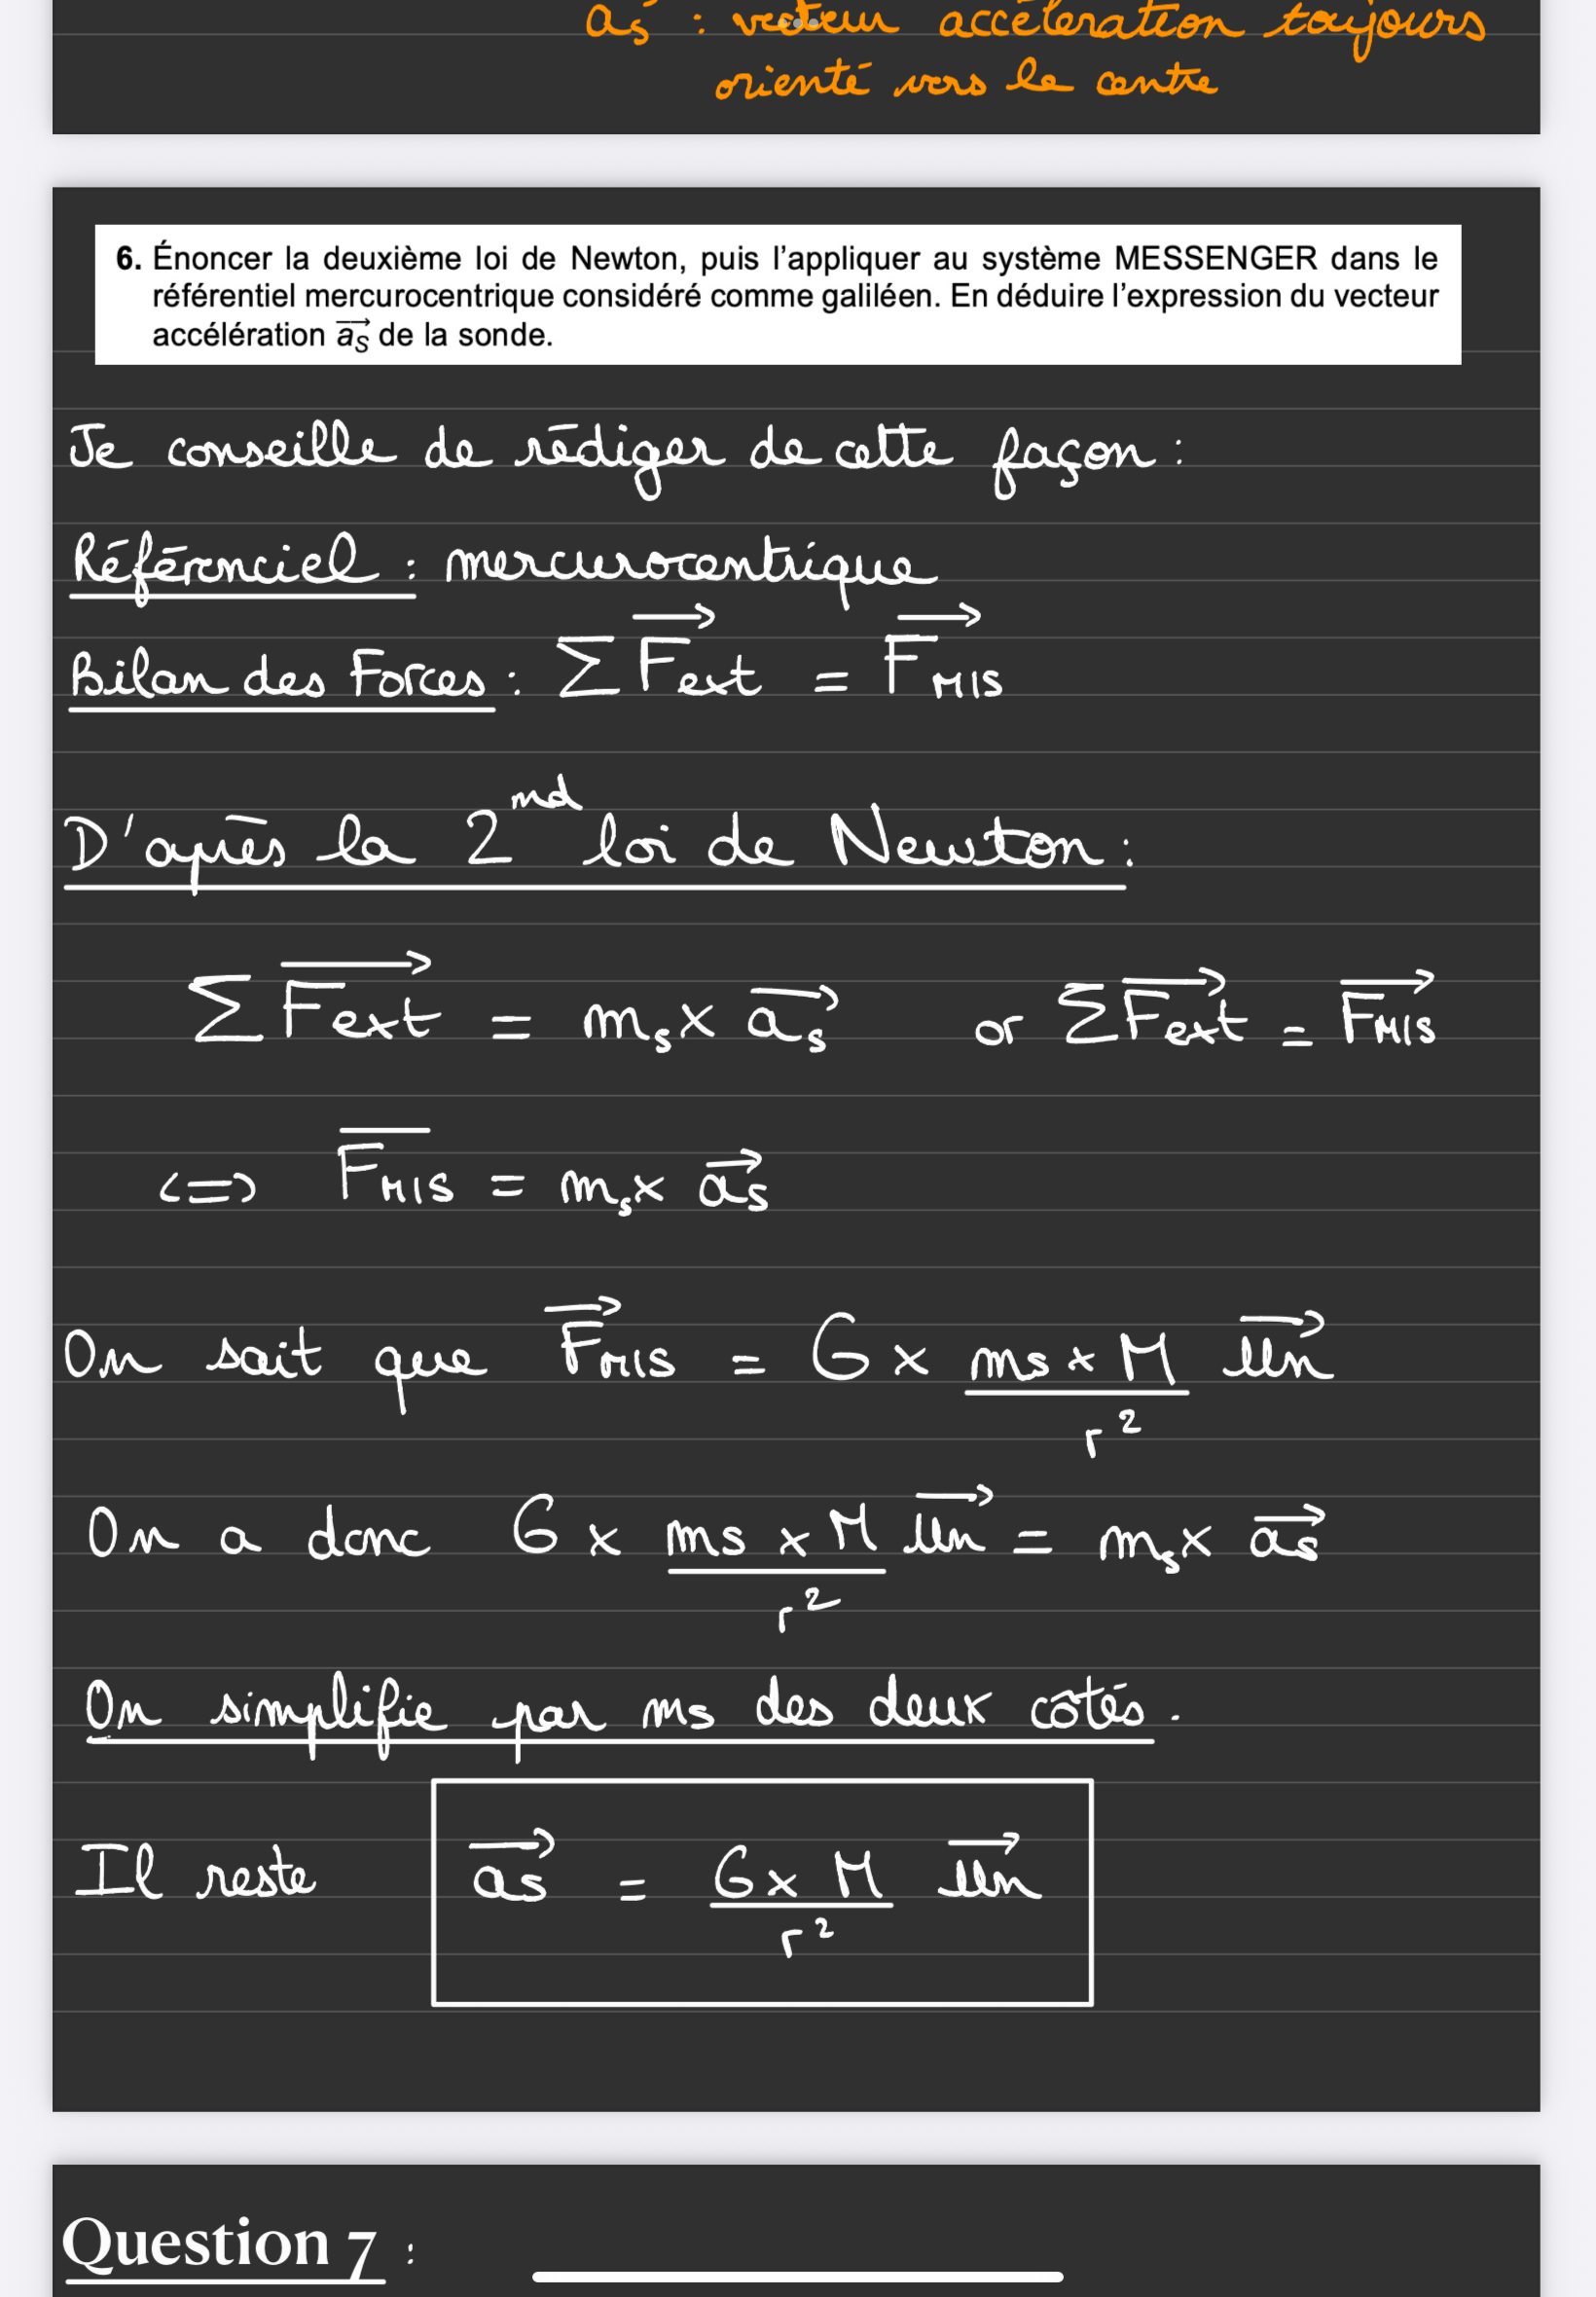 a⃗s : vecteur accéleration toujours
orienté vers le centre
6. Énoncer la deuxième loi de Newton, puis l'appliquer au système MESSENGER dans le
référentiel mercurocentrique considéré comme galiléen. En déduire l'expression du vecteur
accélération a⃗S de la sonde.
Je conseille de rédiger de cette façon :
Référenciel : mercurocentrique
Bilan des Forces : Σ F⃗ext = F⃗M/S
D'après la 2nd loi de Newton :
Σ F⃗ext = ms x a⃗s or Σ F⃗ext = F⃗M/S
<=> F̅M/S = ms x a⃗s
On sait que F⃗M/S = G x ms x M / r² u⃗n
On a donc G x ms x M / r² u⃗n = ms x a⃗s
On simplifie par ms des deux côtés.
Il reste a⃗s = G x M / r² u⃗n
Question 7 :